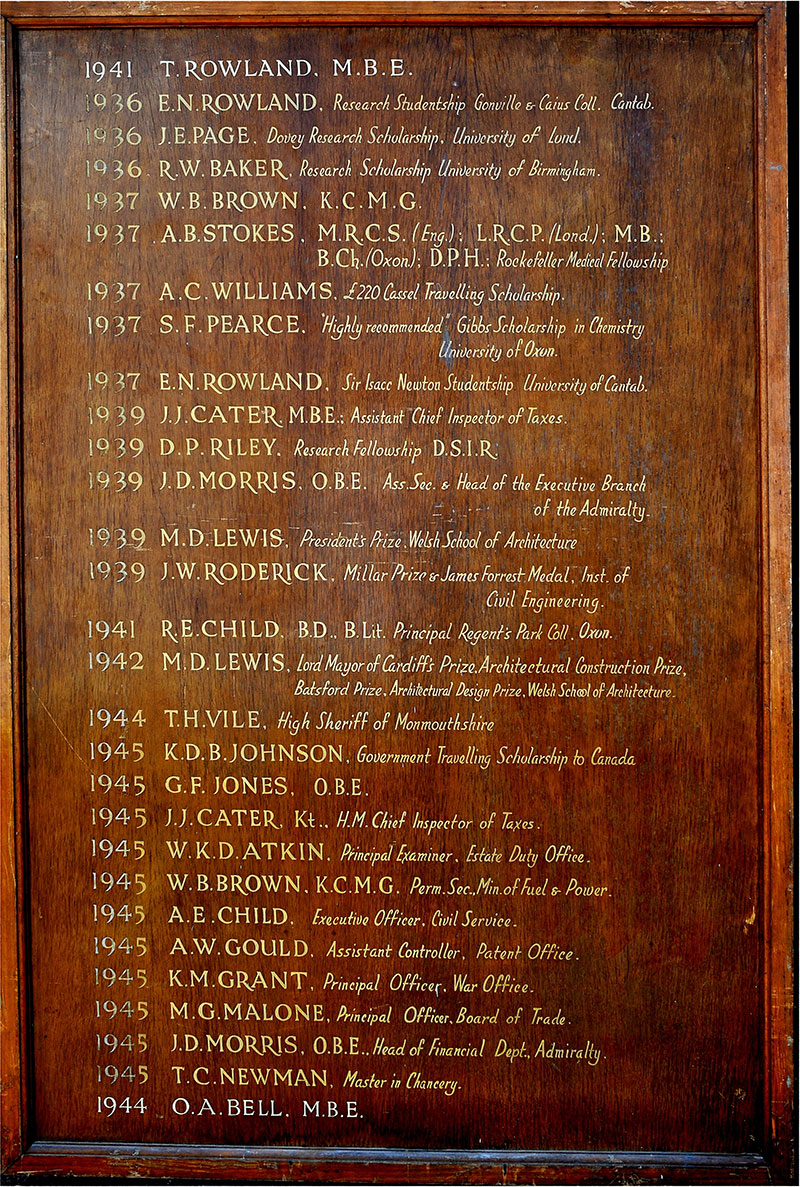 1941 T. ROWLAND. M.B.E.
1936 E.N. ROWLAND. Research Studentship Gonville & Caius Coll. Cantab.
1936 J.E. PAGE. Dovey Research Scholarship. University of Lond.
1936. R.W. BAKER. Research Scholarship University of Birmingham.
1937 W.B. BROWN. K.C.M.G.
1937 A.B. STOKES. M.R.C.S. (Eng.); L.R.C.P. (Lond.); M.B.;
B.Ch. (Oxon.); D.P.H.; Rockefeller Medical Fellowship
1937 A.C. WILLIAMS. £220 Cassel Travelling Scholarship.
1937 S.F. PEARCE. "Highly recommended" Gibbs Scholarship in Chemistry
University of Oxon.
1937 E.N. ROWLAND. Sir Isacc Newton Studentship University of Cantab.
1939 J.J. CATER. M.B.E.; Assistant Chief Inspector of Taxes.
1939 D.P. RILEY. Research Fellowship D.S.I.R.
1939 J.D. MORRIS. O.B.E. Ass. Sec. & Head of the Executive Branch
of the Admiralty.
1939 M.D. LEWIS. President's Prize. Welsh School of Architecture
1939 J.W. RODERICK. Millar Prize & James Forrest Medal. Inst. of
Civil Engineering.
1941 R.E. CHILD. B.D.. B.Lit. Principal Regent's Park Coll. Oxon.
1942 M.D. LEWIS. Lord Mayor of Cardiff's Prize. Architectural Construction Prize,
Batsford Prize. Architectural Design Prize. Welsh School of Architecture.
1944 T.H. VILE. High Sheriff of Monmouthshire
1945 K.D.B. JOHNSON. Government Travelling Scholarship to Canada
1945 G.F. JONES. O.B.E.
1945 J.J. CATER. Kt.. H.M. Chief Inspector of Taxes.
1945 W.K.D. ATKIN. Principal Examiner. Estate Duty Office.
1945 W.B. BROWN. K.C.M.G. Perm. Sec., Min. of Fuel & Power.
1945 A.E. CHILD. Executive Officer. Civil Service.
1945 A.W. GOULD. Assistant Controller. Patent Office.
1945 K.M. GRANT. Principal Officer. War Office.
1945 M.G. MALONE. Principal Officer. Board of Trade.
1945 J.D. MORRIS. O.B.E.. Head of Financial Dept., Admiralty.
1945 T.C. NEWMAN. Master in Chancery.
1944 O.A. BELL. M.B.E.